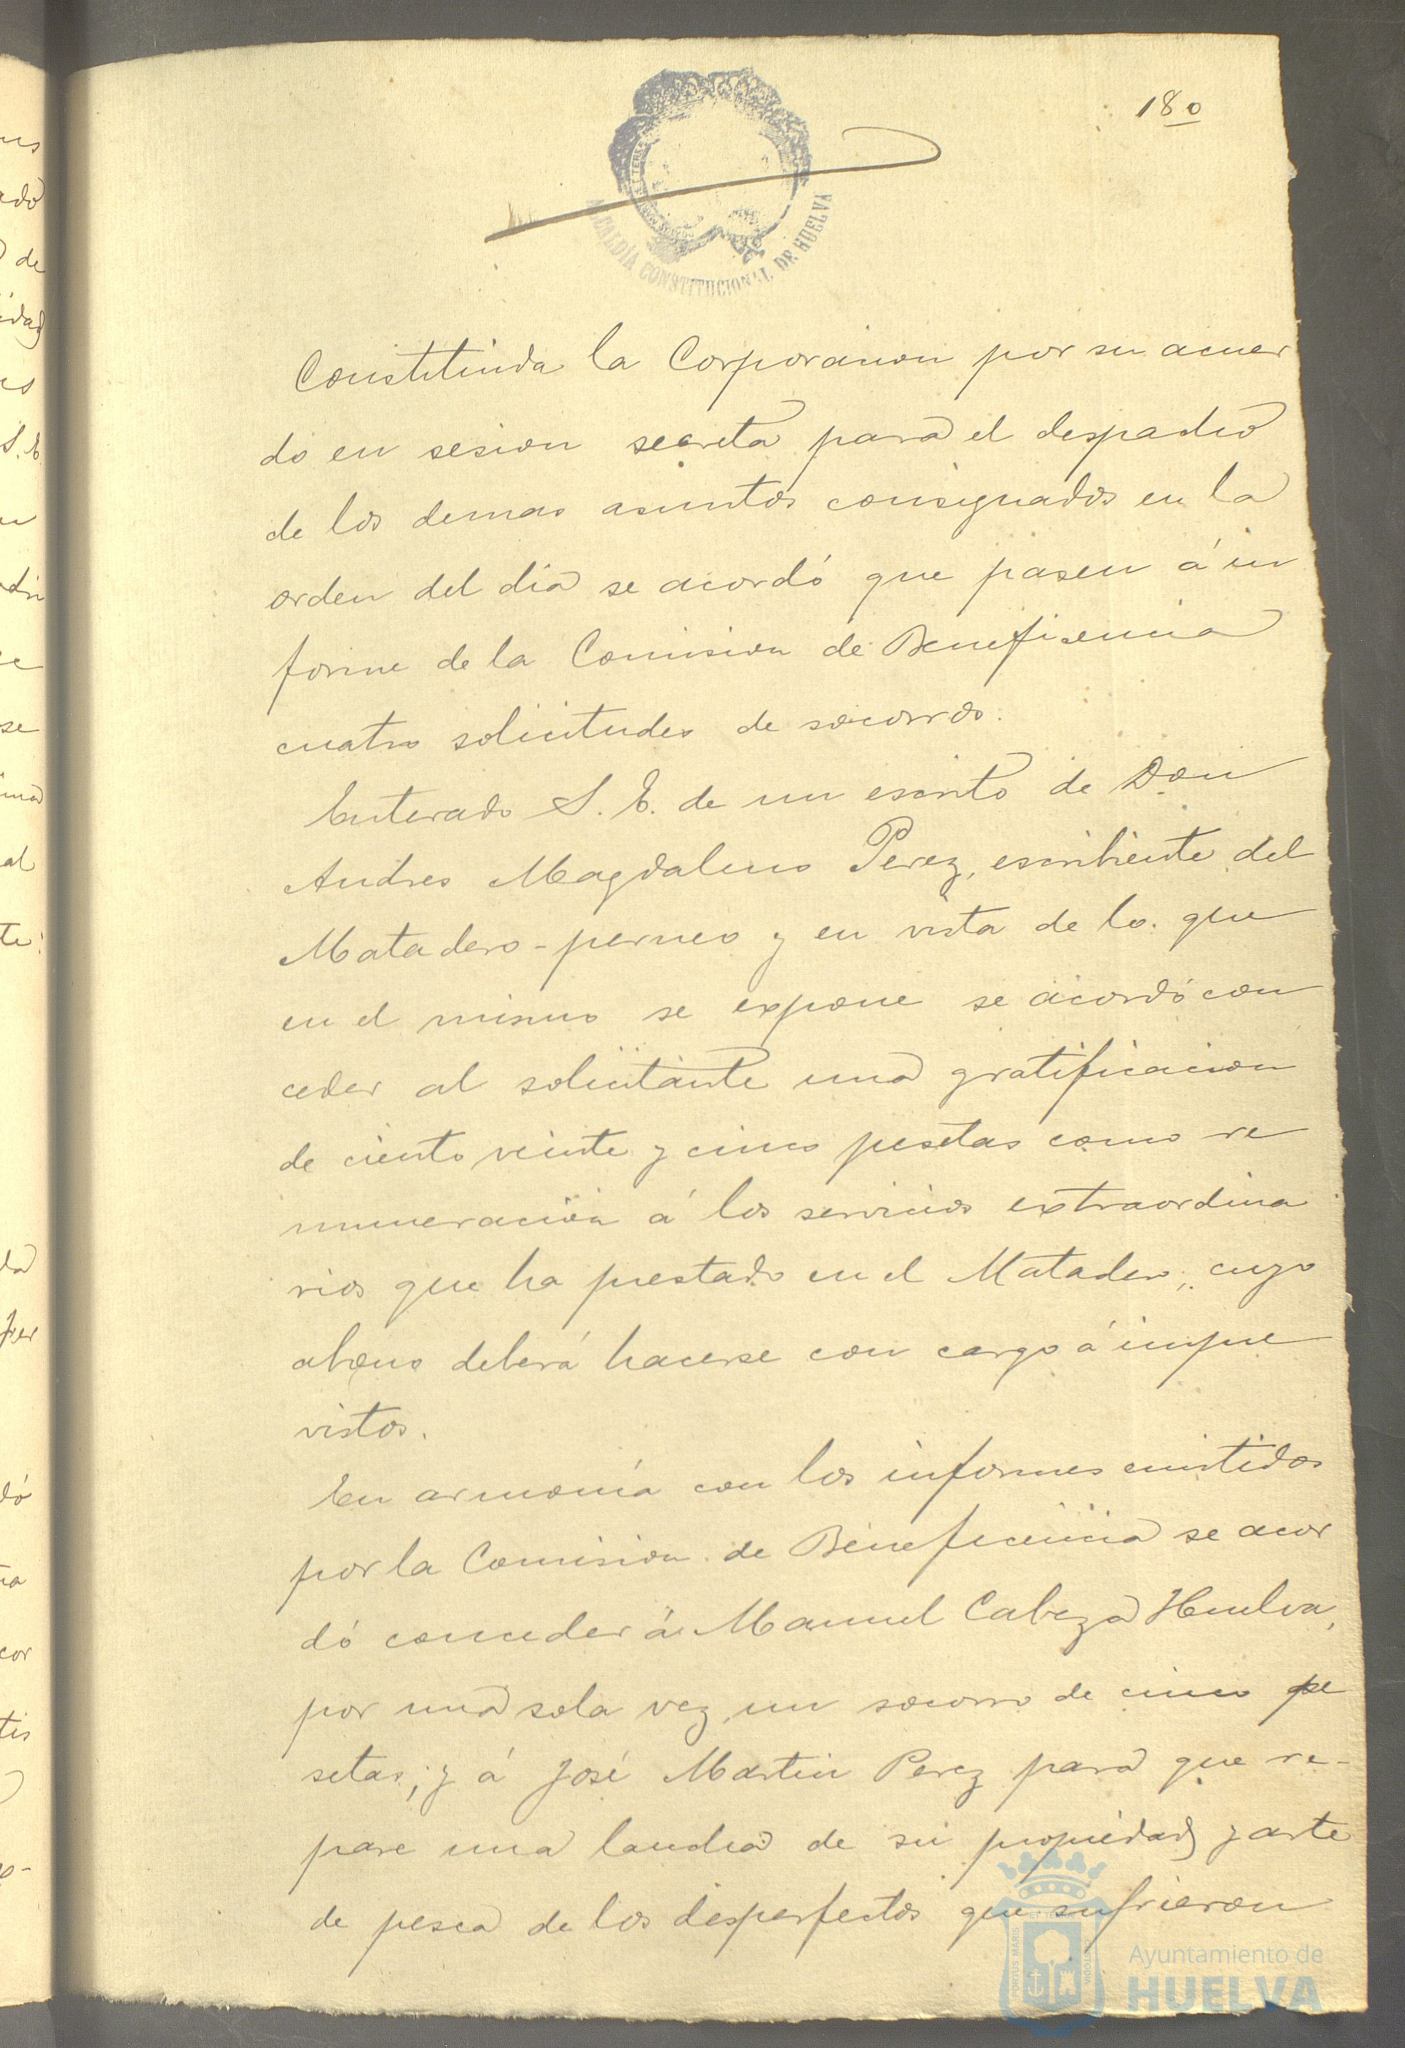 180
ALCALDÍA CONSTITUCIONAL DE HUELVA
Constituida la Corporacion por su acuer
do en sesion secreta para el despacho
de los demas asuntos consignados en la
orden del dia se acordó que pasen á in
forme de la Comision de Beneficencia
cuatro solicitudes de socorros.
Enterado S. E. de un escrito de Don
Andres Magdaleno Perez, escribiente del
Matadero-perneo y en vista de lo que
en el mismo se expone se acordó con
ceder al solicitante una gratificacion
de ciento veinte y cinco pesetas como re
muneración á los servicios extraordina
rios que ha prestado en el Matadero, cuyo
abono deberá hacerse con cargo á impre
vistos.
En armonía con los informes emitidos
por la Comision de Beneficencia se acor
dó conceder á Manuel Cabeza Huelva,
por una sola vez, un socorro de cinco pe
setas; y á José Martin Perez para que re-
pare una lancha de su propiedad y arte
de pesca de los desperfectos que sufrieron
Ayuntamiento de
HUELVA